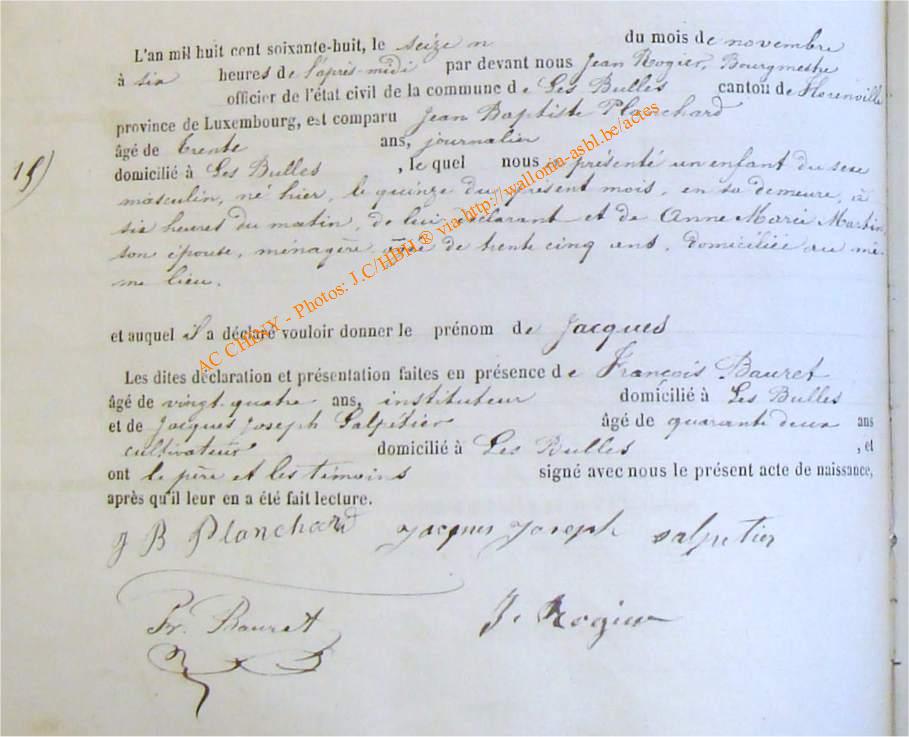 L'an mil huit cent soixante-huit, le seize n du mois de novembre
à six heures de l'après-midi par devant nous Jean Rogier, Bourgmestre
officier de l'état civil de la commune de Les Bulles canton de Florenville
province de Luxembourg, est comparu Jean Baptiste Planchard
âgé de trente ans, journalier
15)
domicilié à Les Bulles, lequel nous a présenté un enfant du sexe
masculin, né hier, le quinze du présent mois, en sa demeure, à
six heures du matin, de lui déclarant et de Anne Marie Martin,
son épouse, ménagère âgée de trente cinq ans, domiciliée au mê-
me lieu.
et auquel il a déclaré vouloir donner le prénom de Jacques
Les dites déclaration et présentation faites en présence de François Bauret
âgé de vingt-quatre ans, instituteur domicilié à Les Bulles
et de Jacques Joseph Salpétier âgé de quarante deux ans
cultivateur domicilié à Les Bulles, et
ont le père et les témoins signé avec nous le présent acte de naissance,
après qu'il leur en a été fait lecture.
J B Planchard Jacques Joseph Salpetier
Fr. Bauret J. Rogier
AC CHINY - Photos: J.C/HBH ® via http://wallonia-asbl.be/actes